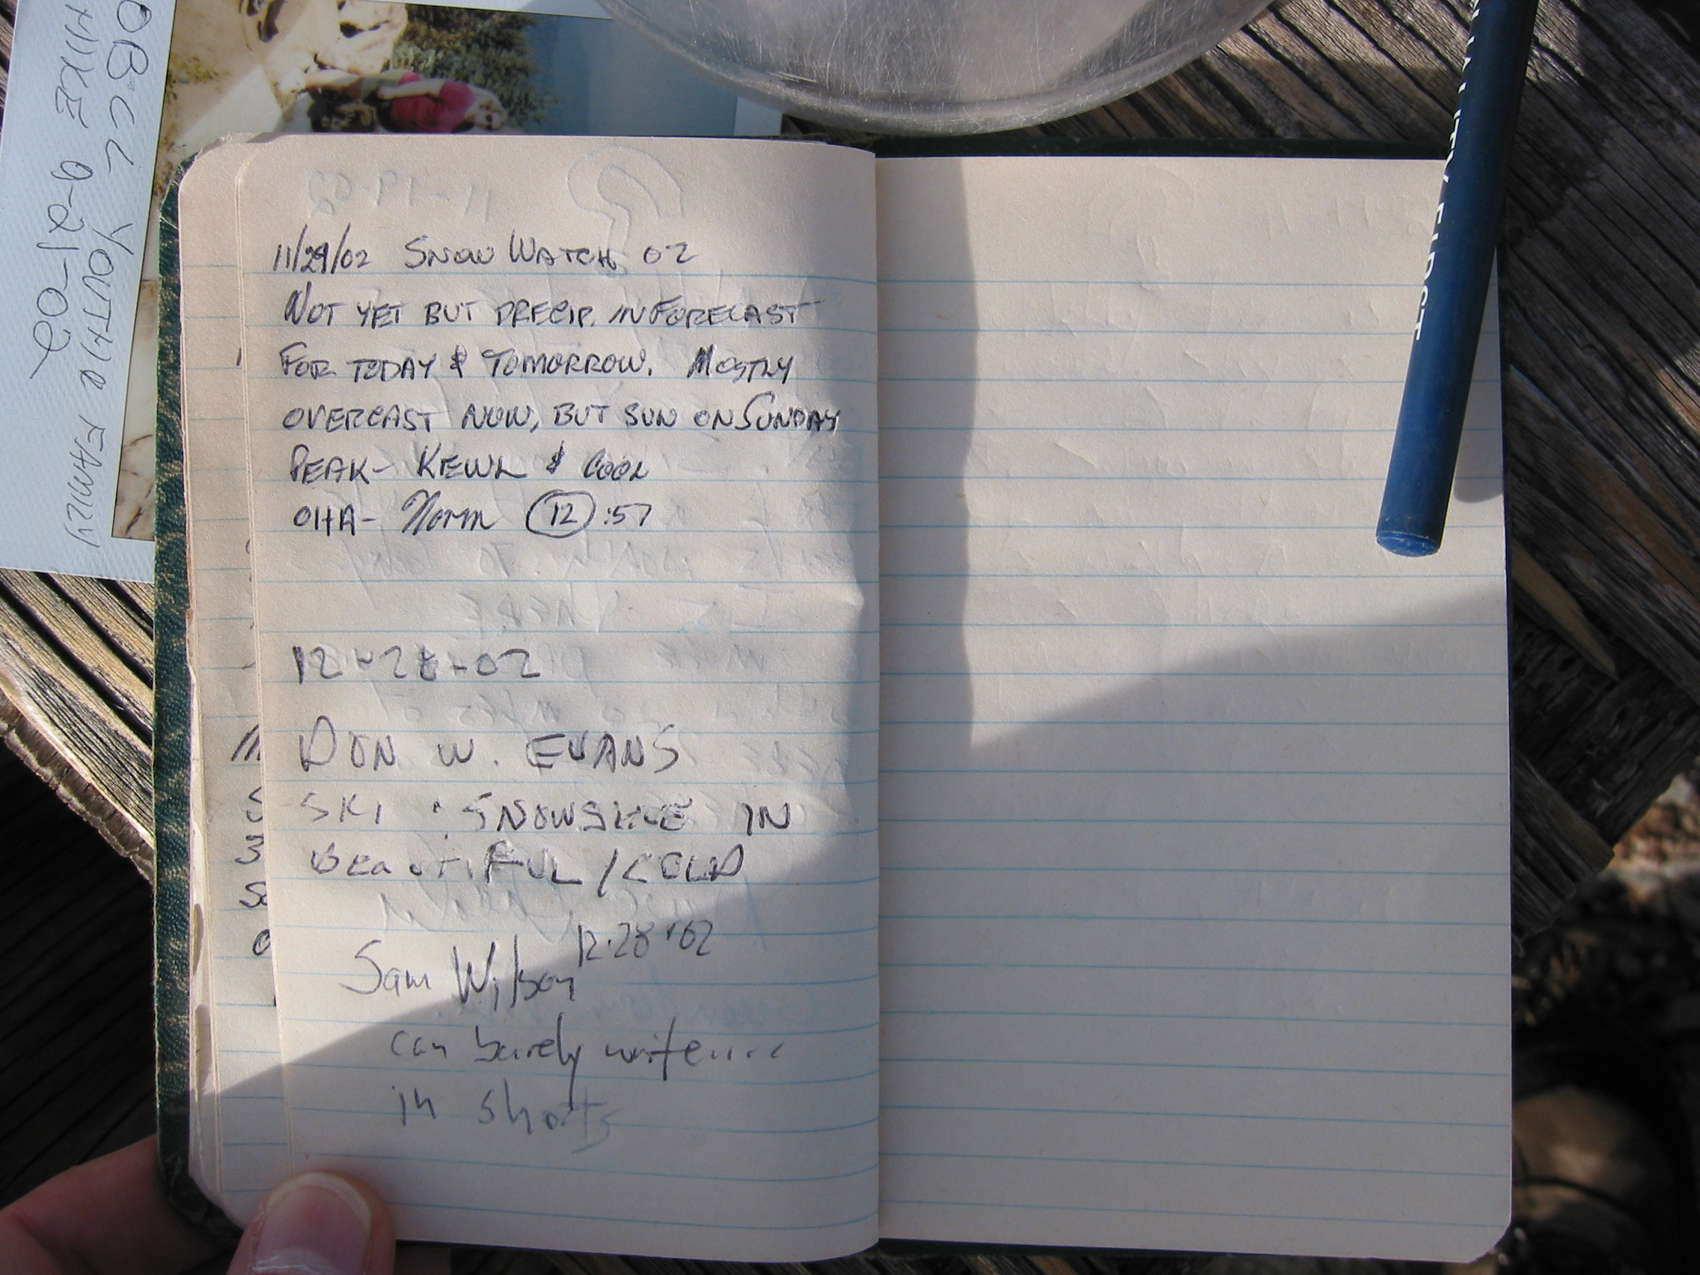 OBCL YOUTH & FAMILY
HIKE 9-21-02
11/29/02 SNOW WATCH 02
NOT YET BUT PRECIP. IN FORECAST
FOR TODAY & TOMORROW. MOSTLY
OVERCAST NOW, BUT SUN ON SUNDAY
PEAK- KEWL & COOL
OHA- Norm 12:57
12-28-02
DON W. EVANS
SKI SNOWSHOE IN
BEAUTIFUL/COLD
Sam Wilson 12·28·02
can barely write....
in shorts
FIRST